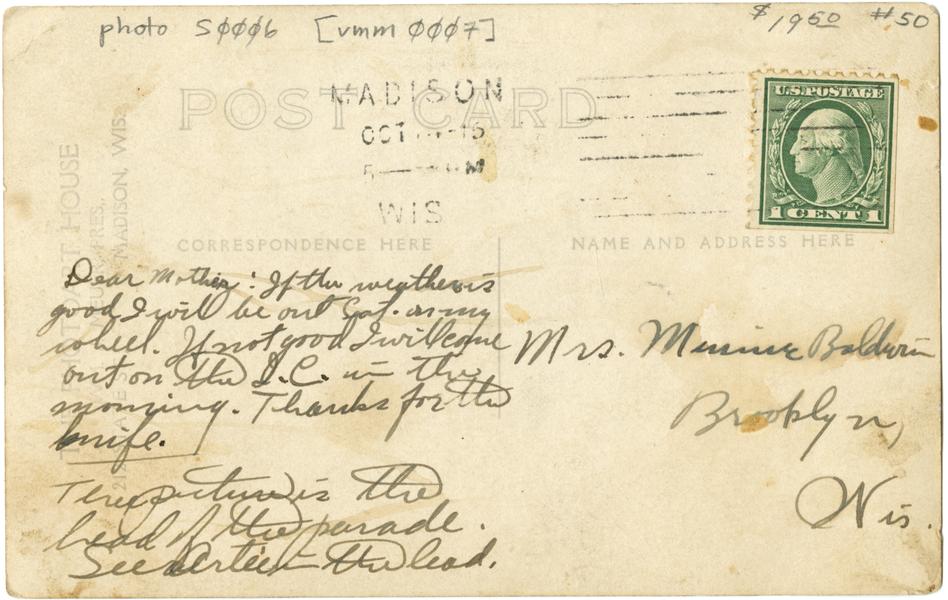 photo SØØØ6 [vmm ØØØ7]
$1950 #50
POST CARD
MADISON
OCT 15
5 M
WIS
U.S. POSTAGE
1 CENT 1
CORRESPONDENCE HERE
NAME AND ADDRESS HERE
HOUSE
MADISON, WIS.
Dear Mother: If the weather is
good I will be out Sat. on my
wheel. If not good I will come
out on the I.C. in the
morning. Thanks for the
knife.
picture is the
head of the parade.
See Artie in the lead.
Mrs. Minnie Baldwin
Brooklyn,
Wis.